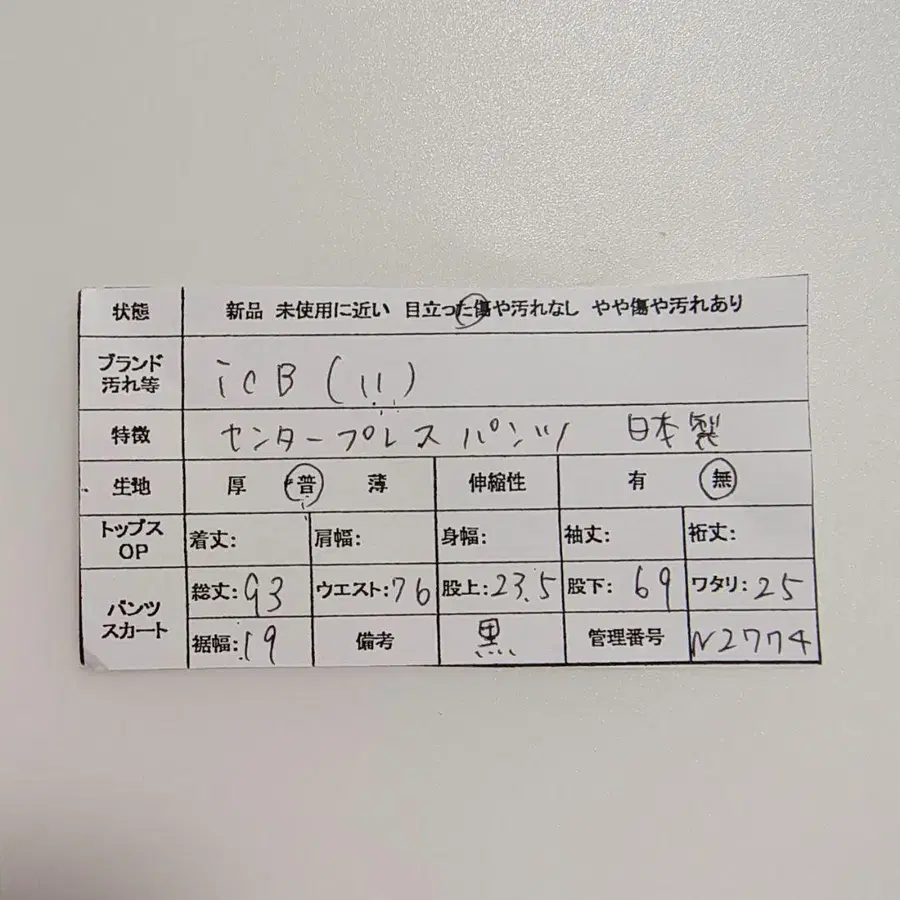 状態 新品 未使用に近い 目立った傷や汚れなし やや傷や汚れあり
ブランド
汚れ等 iCB (11)
特徴 センタープレスパンツ 日本製
生地 厚 普 薄 伸縮性 有 無
トップス
OP 着丈: 肩幅: 身幅: 袖丈: 裄丈:
パンツ
スカート 総丈:93 ウエスト:76 股上:23.5 股下:69 ワタリ:25
裾幅:19 備考 黒 管理番号 N2774